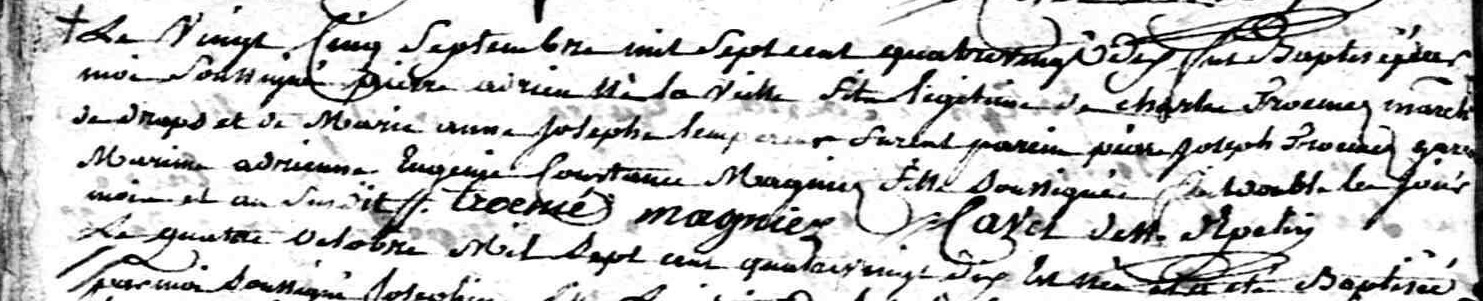 Le Vingt Cinq Septembre mil Sept cent quatrevingt Dix fut Baptisé par
moi Soussigné pierre adrien né la Veille fils légitime de charle Troemez march
de draps et de Marie anne Josephe Lempereur furent parein pierre Joseph Troemez garç
Marine adrienne Eugenie Constance Magniez fille Soussignée le jour
mois et an Susdit Troemé magniez
Le quatre octobre Mil Sept cent quatrevingt Dix Est née et a été Baptisée
par moi Soussigné